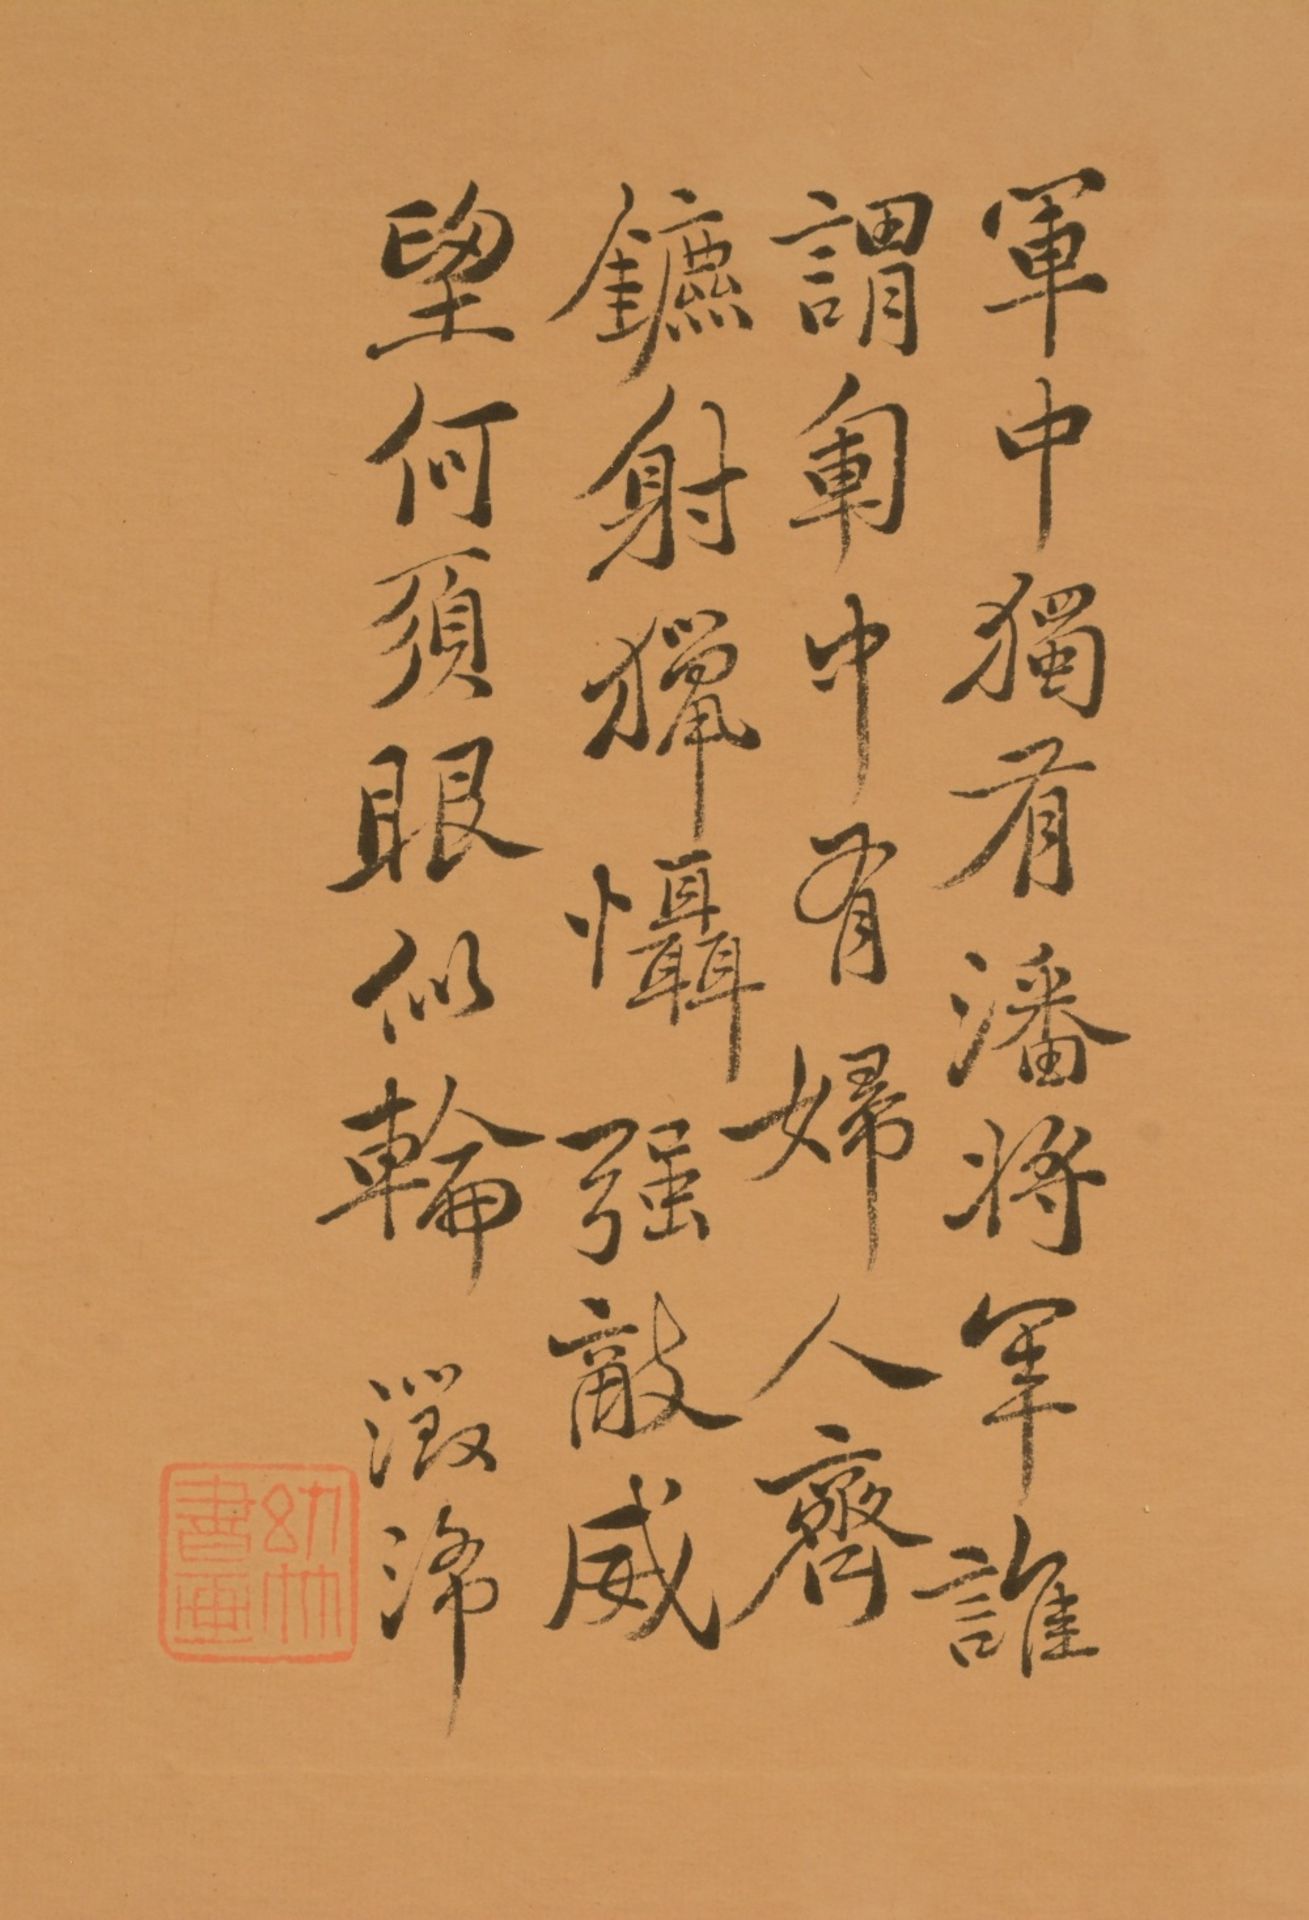 軍中獨有潘將軍誰
謂軍中有婦人齊
鑣射獵懾强敵威
望何須眼似輪
澂
幼林書畫